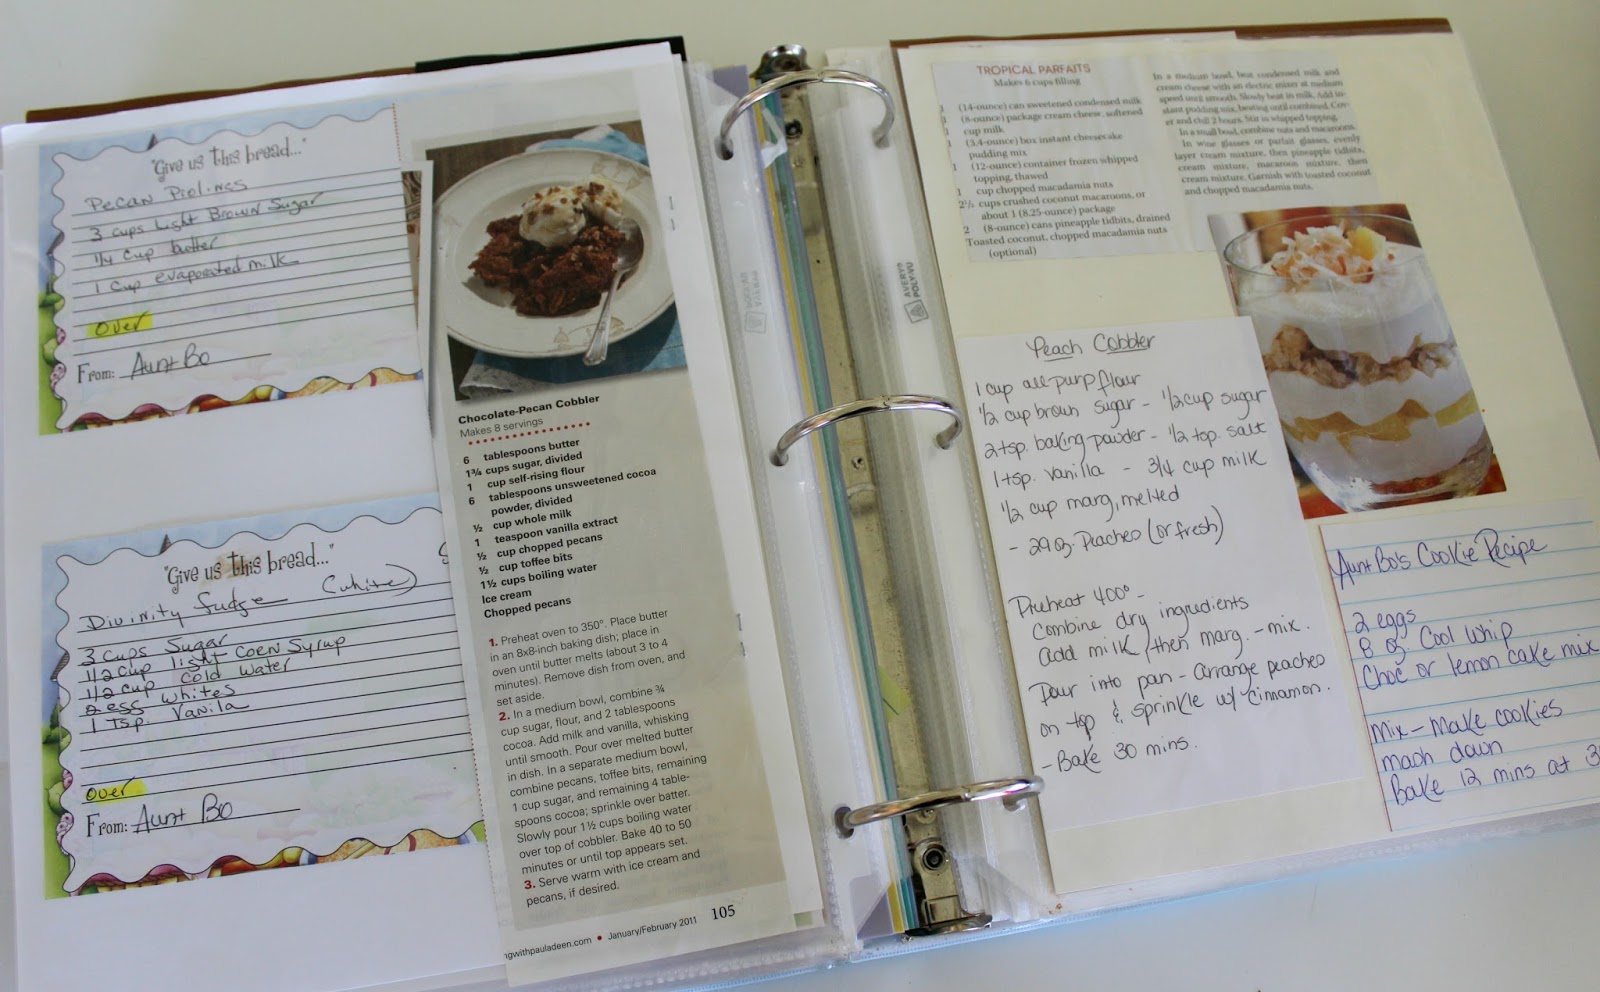 "Give us this bread..."
Pecan Pralines
3 cups Light Brown Sugar
1/4 cup butter
1 cup evaporated milk
Over
From: Aunt Bo
"Give us this bread..."
Divinity fudge (white)
3 cups Sugar
1/2 cup light Corn Syrup
1/2 cup cold water
2 egg whites
1 Tsp. Vanila
over
From: Aunt Bo
Chocolate-Pecan Cobbler
Makes 8 servings
6 tablespoons butter
1¾ cups sugar, divided
1 cup self-rising flour
6 tablespoons unsweetened cocoa
powder, divided
½ cup whole milk
1 teaspoon vanilla extract
½ cup chopped pecans
½ cup toffee bits
1½ cups boiling water
Ice cream
Chopped pecans
1. Preheat oven to 350°. Place butter
in an 8x8-inch baking dish; place in
oven until butter melts (about 3 to 4
minutes). Remove dish from oven, and
set aside.
2. In a medium bowl, combine ¾
cup sugar, flour, and 2 tablespoons
cocoa. Add milk and vanilla, whisking
until smooth. Pour over melted butter
in dish. In a separate medium bowl,
combine pecans, toffee bits, remaining
1 cup sugar, and remaining 4 table-
spoons cocoa; sprinkle over batter.
Slowly pour 1½ cups boiling water
over top of cobbler. Bake 40 to 50
minutes or until top appears set.
3. Serve warm with ice cream and
pecans, if desired.
ngwithpauladeen.com • January/February 2011 105
AVERY®
POLY-VU
TROPICAL PARFAITS
Makes 6 cups filling
1 (14-ounce) can sweetened condensed milk
1 (8-ounce) package cream cheese, softened
1 cup milk
1 (3.4-ounce) box instant cheesecake
pudding mix
1 (12-ounce) container frozen whipped
topping, thawed
1 cup chopped macadamia nuts
2½ cups crushed coconut macaroons, or
about 1 (8.25-ounce) package
2 (8-ounce) cans pineapple tidbits, drained
Toasted coconut, chopped macadamia nuts
(optional)
In a medium bowl, beat condensed milk and
cream cheese with an electric mixer at medium
speed until smooth. Slowly beat in milk. Add in-
stant pudding mix, beating until combined. Cov-
er and chill 2 hours. Stir in whipped topping.
In a small bowl, combine nuts and macaroons.
In wine glasses or parfait glasses, evenly
layer cream mixture, then pineapple tidbits,
cream mixture, macaroon mixture, then
cream mixture. Garnish with toasted coconut
and chopped macadamia nuts.
Peach Cobbler
1 cup all purp flour
1/2 cup brown sugar - 1/2 cup sugar
2 tsp. baking powder - 1/2 tsp. salt
1 tsp. vanilla - 3/4 cup milk
1/2 cup marg, melted
- 29 oz. Peaches (or fresh)
Preheat 400° -
Combine dry ingredients
add milk, then marg. - mix.
Pour into pan - arrange peaches
on top & sprinkle w/ cinnamon.
- Bake 30 mins.
Aunt Bo's Cookie Recipe
2 eggs
8 oz. Cool Whip
Choc or lemon cake mix
Mix - Make cookies
mash down
Bake 12 mins at 3